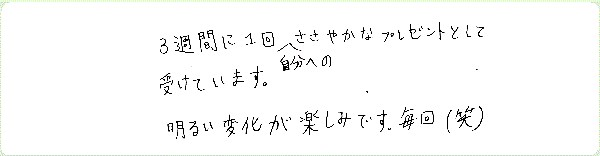 3週間に1回 自分への ささやかなプレゼントとして
受けています。
明るい変化が楽しみです。毎回(笑)